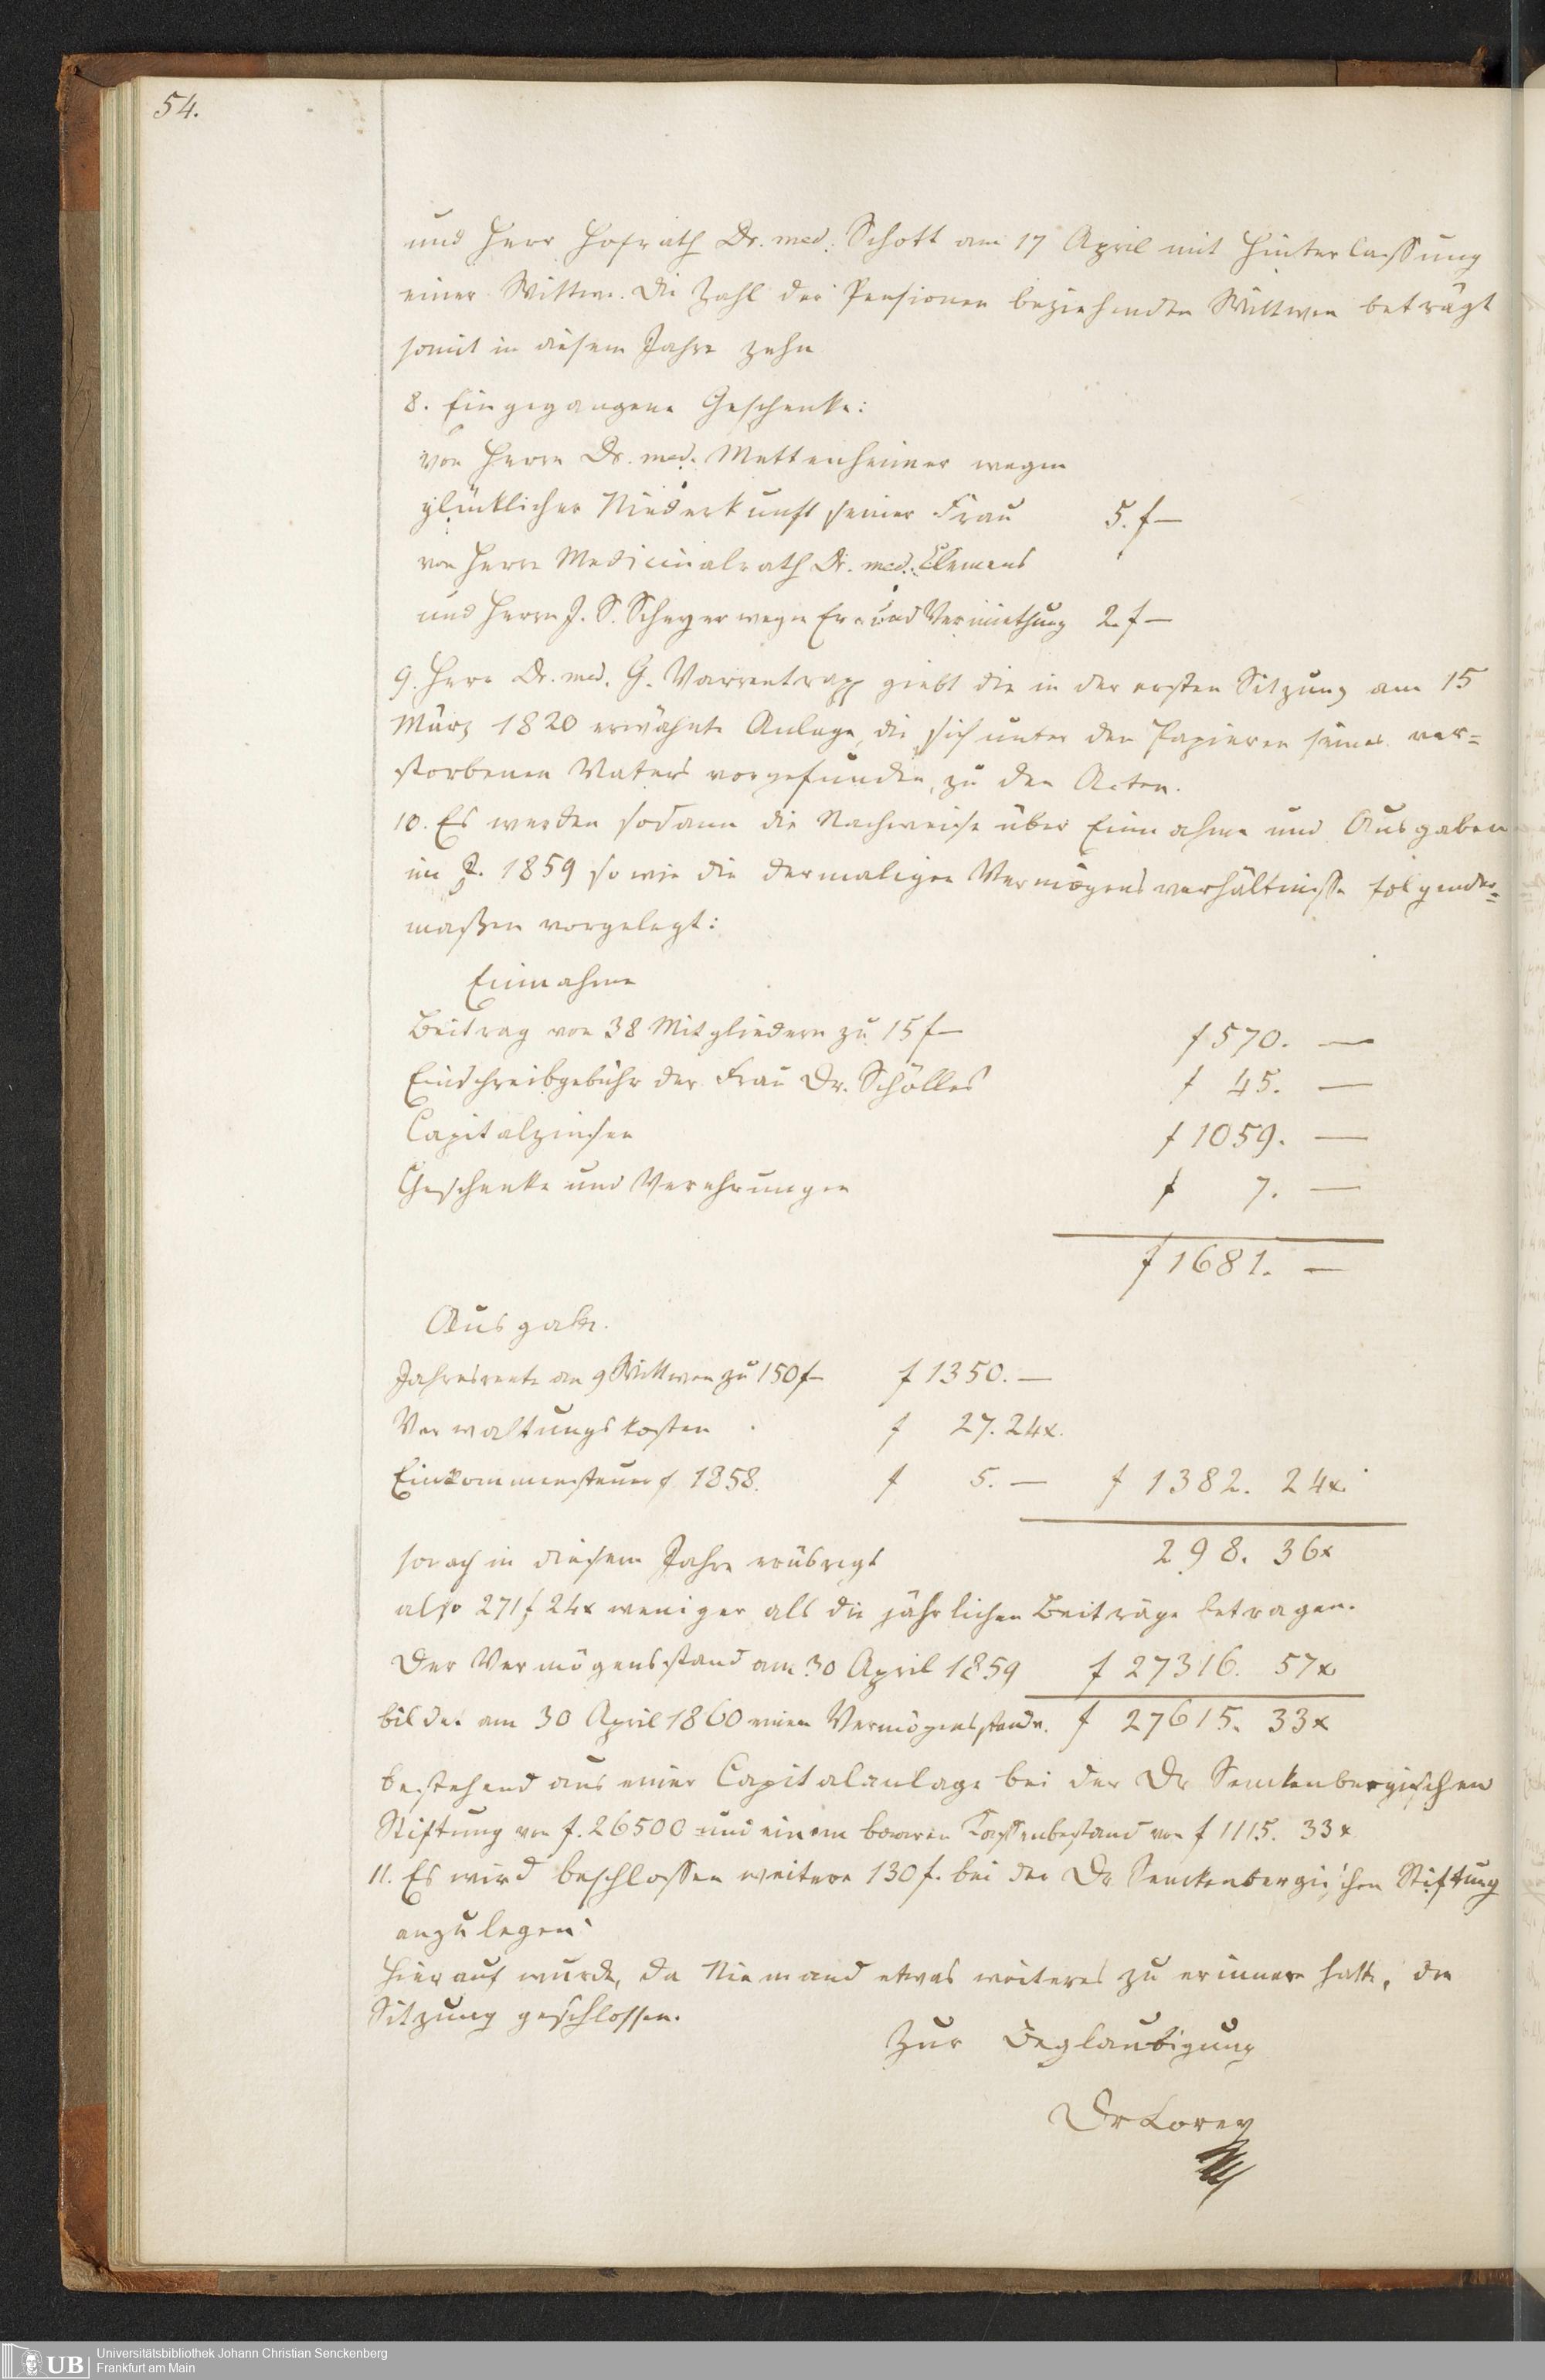 54.
und Herr Hofrath Dr. med. Schott am 17 April mit Hinterlassung
einer Wittwe. Die Zahl der Pensionen beziehenden Wittwen beträgt
somit in diesem Jahre zehn
8. Eingegangene Geschenke:
von Herrn Dr. med. Mettenheimer wegen
glücklicher Niederkunft seiner Frau 5. f —
von Herrn Medicinalrath Dr. med. Clemens
und Herrn J. S. Scheyer wegen und Vermiethung 2. f —
9. Herr Dr. med. G. Varrentrapp giebt die in der ersten Sitzung am 15
März 1820 erwähnte Anlage, die sich unter den Papieren seines ver=
storbenen Vaters vorgefunden, zu den Acten.
10. Es werden sodann die Nachweise über Einnahme und Ausgaben
im J. 1859 so wie die dermaligen Vermögensverhältnisse folgender=
maßen vorgelegt:
Einnahme
Beitrag von 38 Mitgliedern zu 15 f — f 570. —
Einschreibgebühr der Frau Dr. Schölles f 45. —
Capitalzinsen f 1059. —
Geschenke und Verehrungen f 7. —
f 1681. —
Ausgabe.
Jahresrente an 9 Wittwen zu 150 f — f 1350. —
Verwaltungskosten f 27. 24x.
Einkommensteuer 1858. f 5. — f 1382. 24x.
sonach in diesem Jahre erübrigt 298. 36x
also 271 f 24x weniger als die jährlichen Beiträge betragen.
Der Vermögensstand am 30 April 1859 f 27316. 57x
bildet am 30 April 1860 einen Vermögensstand v. f 27615. 33x
bestehend aus einer Capitalanlage bei der Dr Senckenbergischen
Stiftung von f. 26500 und einem baaren Cassenbestand von f 1115. 33x
11. Es wird beschlossen weitere 130 f. bei der Dr Senckenbergischen Stiftung
anzulegen.
Hierauf wurde, da Niemand etwas weiteres zu erinnern hatte, die
Sitzung geschlossen.
Zur Beglaubigung
Dr Lorey
UB Universitätsbibliothek Johann Christian Senckenberg
Frankfurt am Main